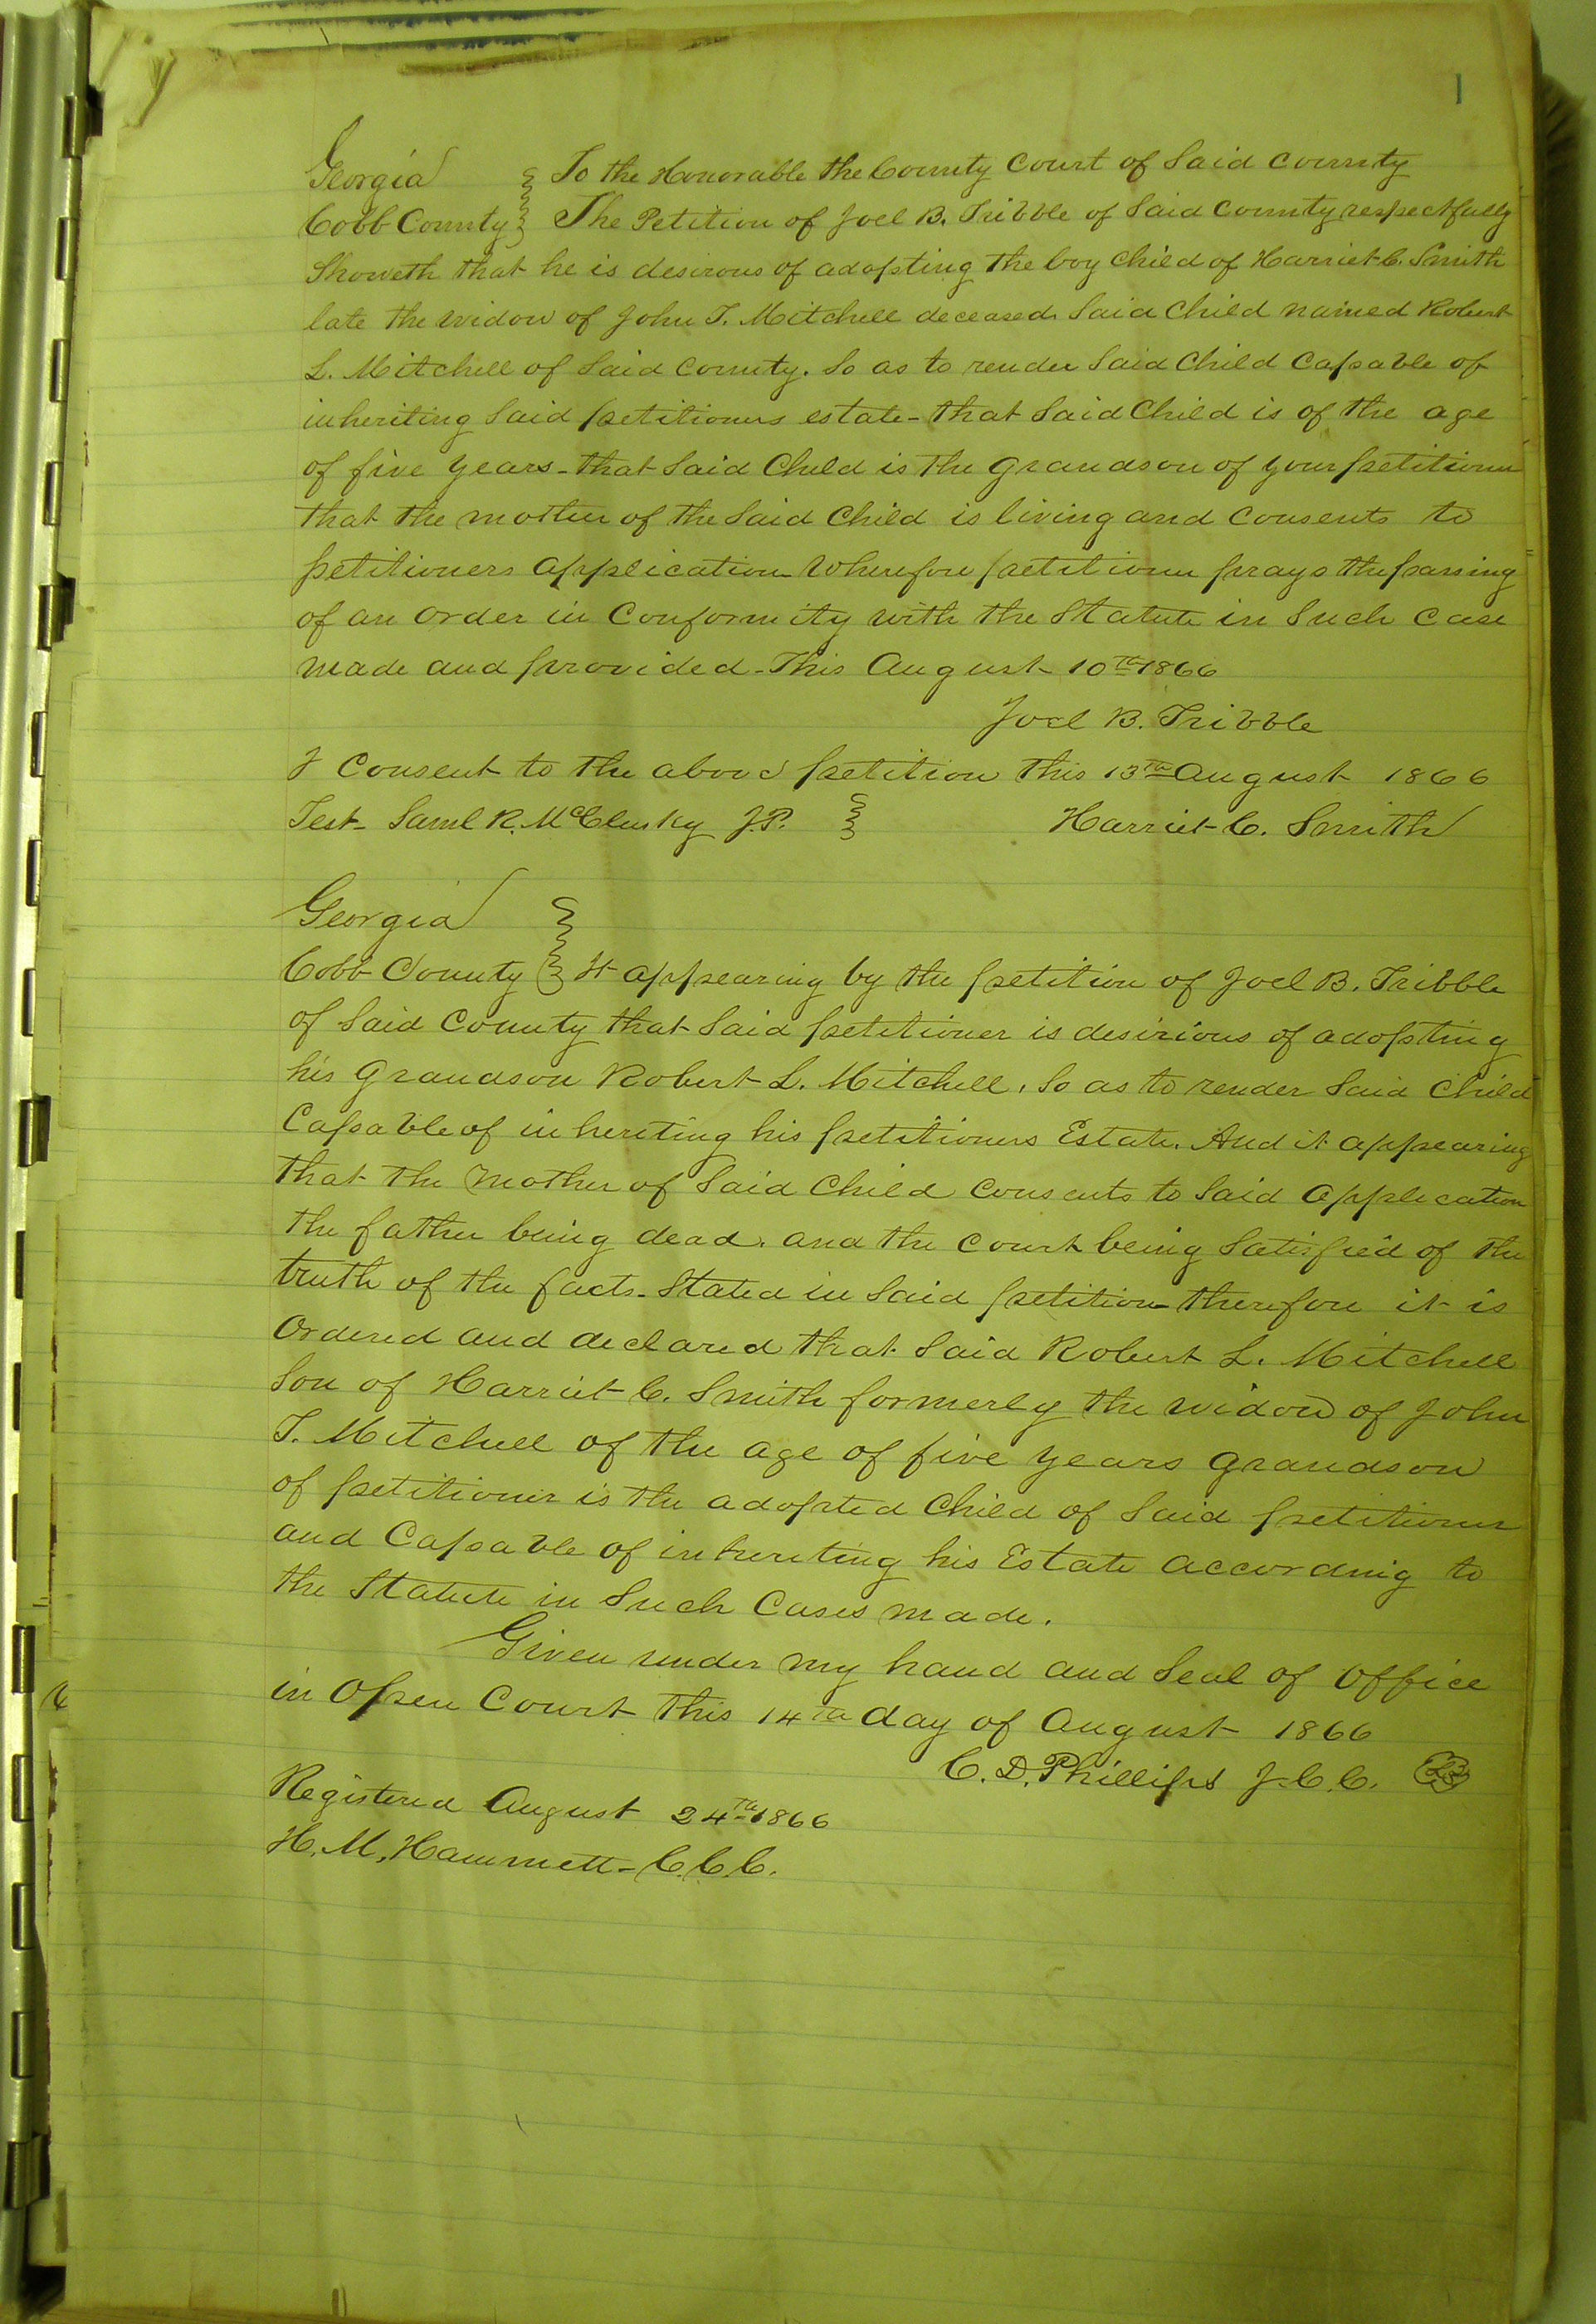 1
Georgia } To the Honorable the County Court of Said County
Cobb County } The Petition of Joel B. Tribble of Said County respectfully
Showeth that he is desirous of adopting the boy Child of Harriet C. Smith
late the widow of John T. Mitchell deceased. Said Child named Robert
L. Mitchell of Said County. So as to render Said Child Capable of
inheriting Said petitioners estate - that Said Child is of the age
of five years - that Said Child is the grandson of your petitioner
that the mother of the Said Child is living and Consents to
petitioners application - Wherefore petitioner prays the passing
of an order in Conformity with the Statute in Such Case
made and provided - This August 10th 1866
Joel B. Tribble
I Consent to the above petition this 13th August 1866
Test - Saml R. McClusky J.P. } Harriet C. Smith
Georgia }
Cobb County } It appearing by the petition of Joel B. Tribble
of Said County that Said petitioner is desirious of adopting
his Grandson Robert L. Mitchell, So as to render Said Child
Capable of inheriting his petitioners Estate. And it appearing
that the mother of Said Child Consents to Said application
the father being dead. and the Court being Satisfied of the
truth of the facts - Stated in Said petition - therefore it is
Ordered and declared that Said Robert L. Mitchell
Son of Harriet C. Smith formerly the widow of John
T. Mitchell of the age of five years grandson
of petitioner is the adopted Child of Said petitioner
and Capable of inheriting his Estate according to
the Statute in Such Cases made.
Given under my hand and Seal of Office
in Open Court this 14th day of August 1866
C. D. Phillips J.C.C.
Registered August 24th 1866
H. M. Hammett - C.C.C.